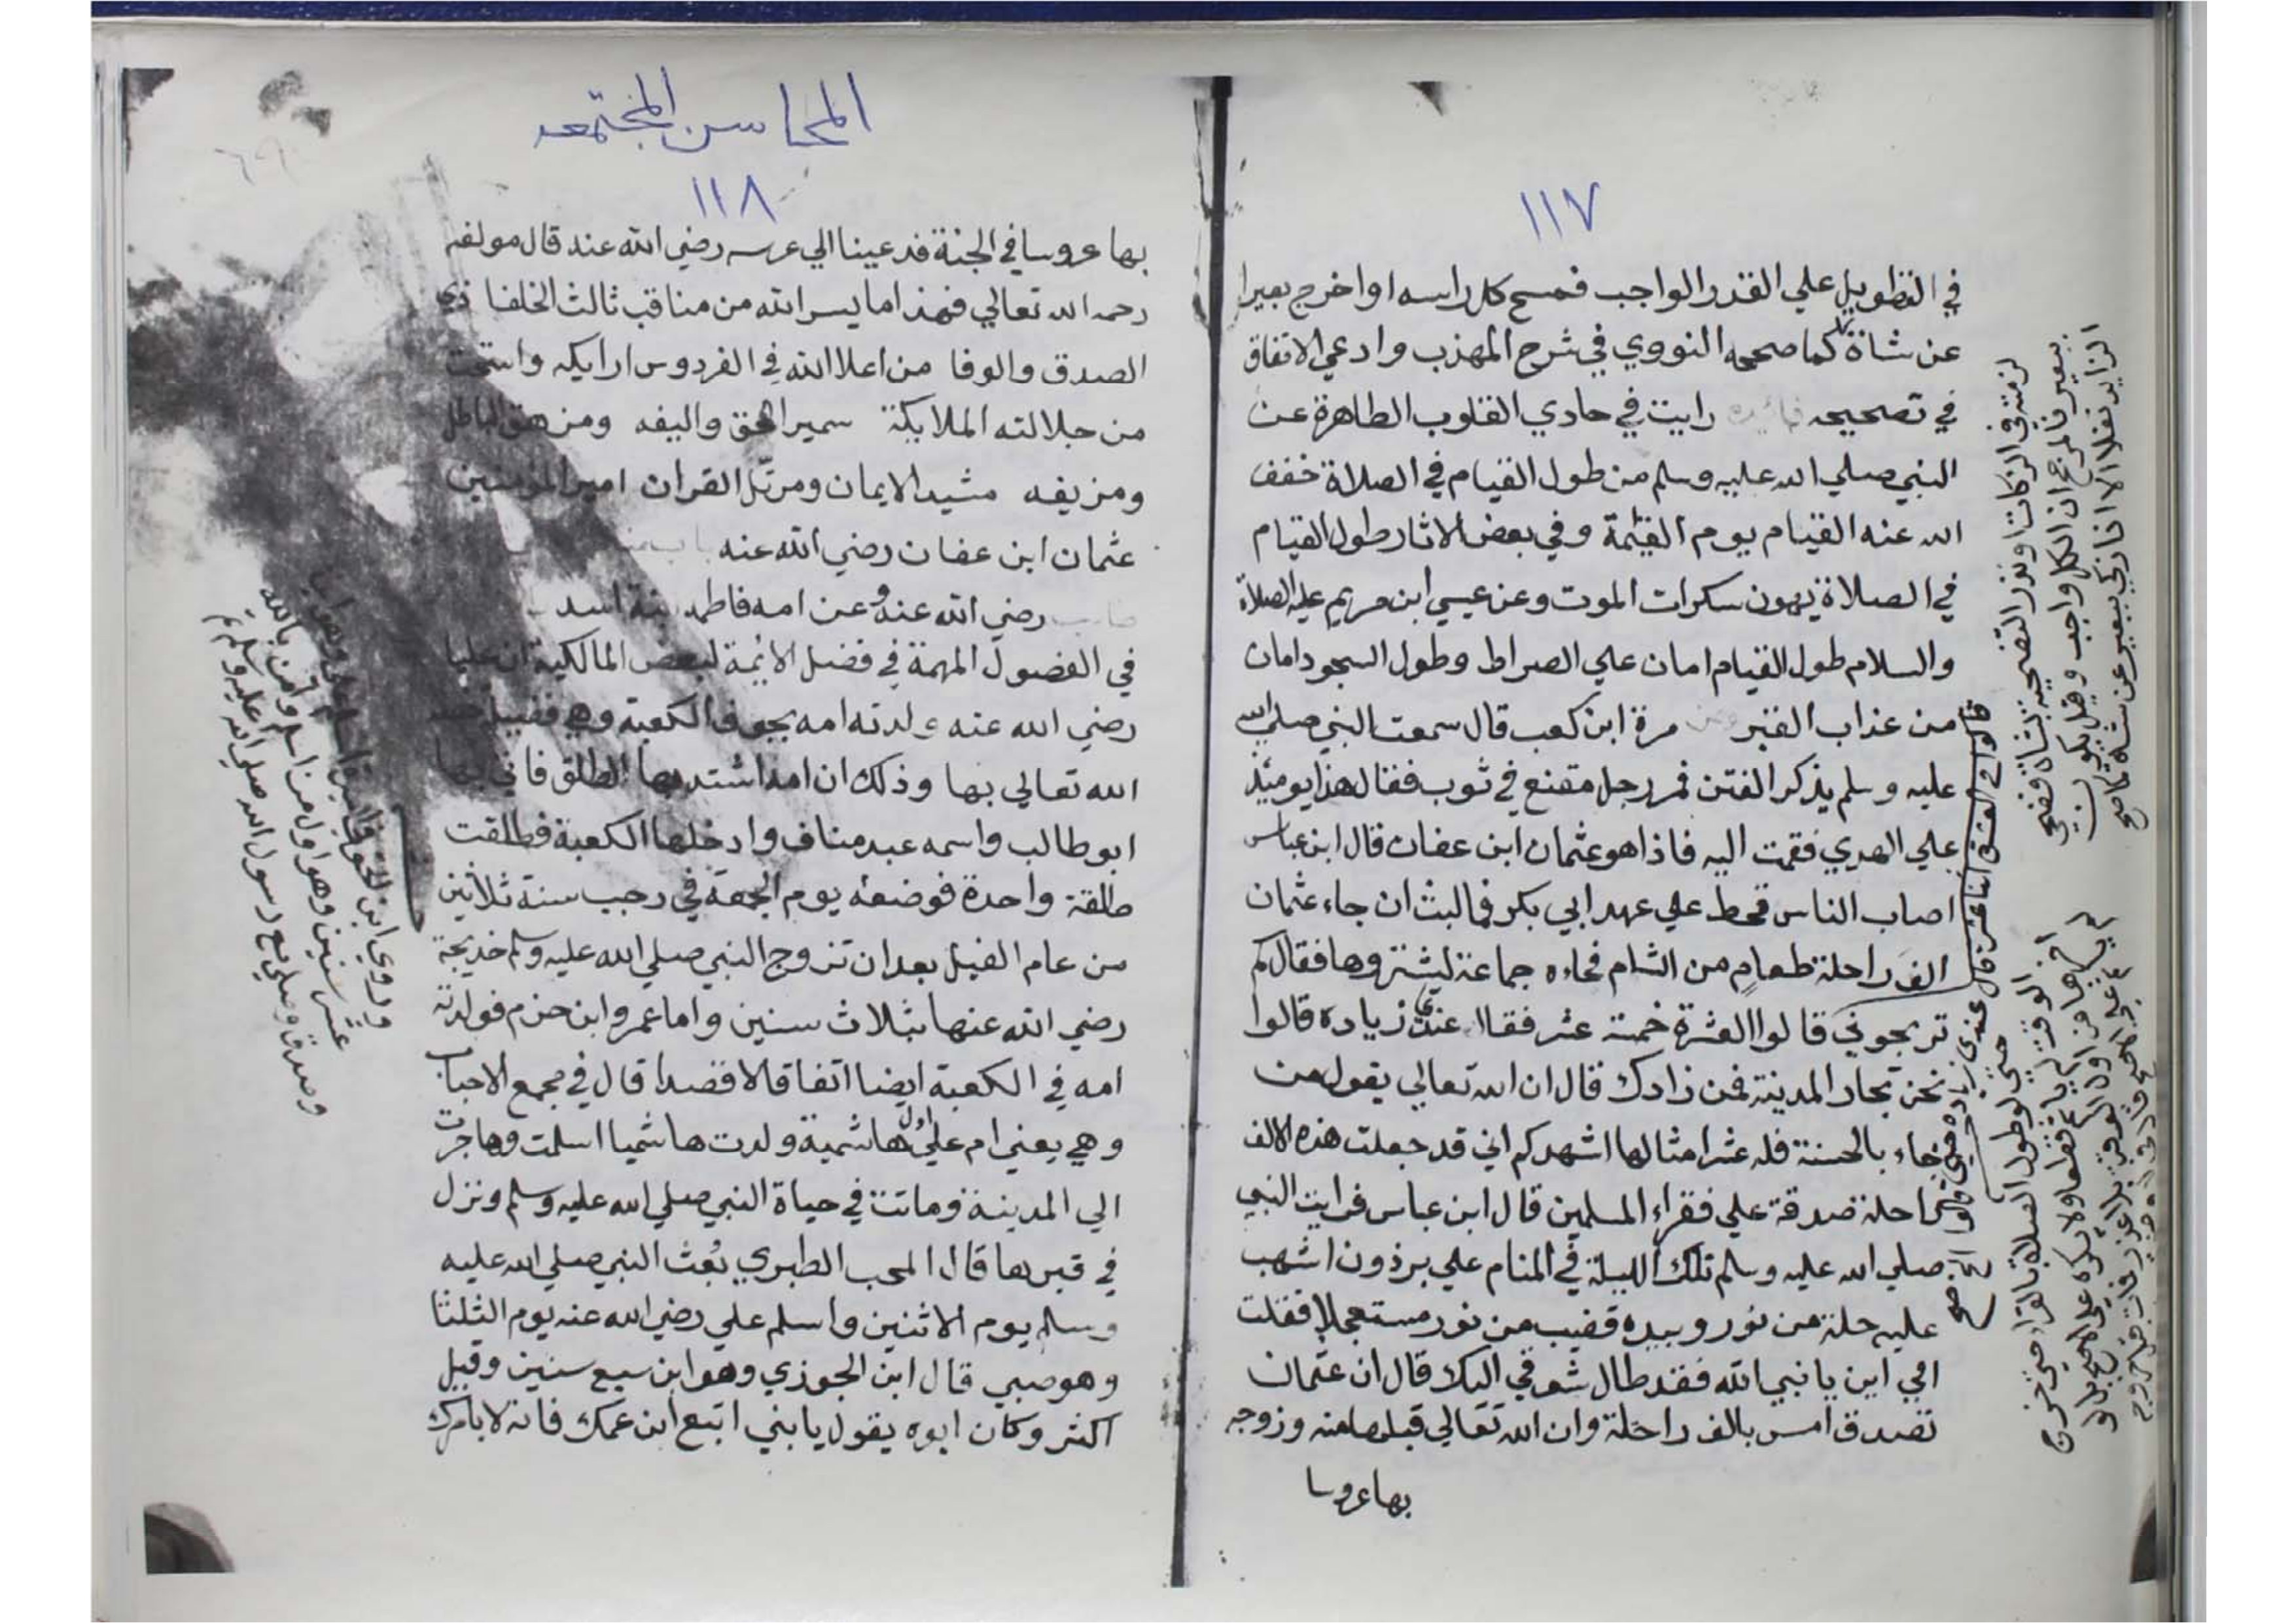 ١١٧
في التطويل علي القدر الواجب فمسح كل راسه او اخرج بعيرا
عن شاة كما صححه النووي في شرح المهذب وادعي الاتفاق
في تصحيحه فائدة رايت في حادي القلوب الطاهرة عن
النبي صلي الله عليه وسلم من طول القيام في الصلاة خفف
الله عنه القيام يوم القيمة وفي بعض الاثار طول القيام
في الصلاة يهون سكرات الموت وعن عيسي ابن مريم عليه الصلاة
والسلام طول القيام امان علي الصراط وطول السجود امان
من عذاب القبر وعن مرة ابن كعب قال سمعت النبي صلي الله
عليه وسلم يذكر الفتن فمر رجل مقنع في ثوب فقال هذا يومئذ
علي الهدي فقمت اليه فاذا هو عثمان ابن عفان قال ابن عباس
اصاب الناس قحط علي عهد ابي بكر فما لبث ان جاء عثمان
الف راحلة طعام من الشام فجاءه جماعة ليشتروها فقال كم
تربحوني قالوا العشرة خمسة عشر فقال عندي زيادة قالوا
نحن تجار المدينة فمن زادك قال ان الله تعالي يقول من
جاء بالحسنة فله عشر امثالها اشهدكم اني قد جعلت هذه الالف
راحلة صدقة علي فقراء المسلمين قال ابن عباس فرايت النبي
صلي الله عليه وسلم تلك الليلة في المنام علي برذون اشهب
عليه حلة من نور وبيده قضيب من نور مستعجلا فقلت
الي اين يا نبي الله فقد طال شوقي اليك قال ان عثمان
تصدق امس بالف راحلة وان الله تعالي قبلها منه وزوجه
بها عروسا
لزمته في الزكات او نذر التضحية بشاة فضحي
ببعير فالمرجح ان الكل واجب وقيل يكون
الزايد نفلا الا اذا زكي ببعير عن شاة صح
قالوا في العشرة اثنا عشر قال عندي زيادة
حتي لو طول الصلاة بالقراءة حتي خرج
المحاسن المجتمعه
١١٨
بها عروسا في الجنة فدعينا الي عرسه رضي الله عنه قال مولفه
رحمه الله تعالي فهذا ما يسر الله من مناقب ثالث الخلفا ذي
الصدق والوفا من اعلا الله في الفردوس ارايكه واستحت
من جلالته الملايكة سمير الحق واليفه ومزهق الباطل
ومزيفه مشيد الايمان ومرتل القران امير المؤمنين
عثمان ابن عفان رضي الله عنه
رضي الله عنه وعن امه فاطمة بنت اسد
في الفصول المهمة في فضل الائمة لبعض المالكية ان عليا
رضي الله عنه ولدته امه بجوف الكعبة وهي فضيلة خصه
الله تعالي بها وذلك ان امه اشتد بها الطلق فاتي بها
ابو طالب واسمه عبد مناف وادخلها الكعبة فطلقت
طلقة واحدة فوضعته يوم الجمعة في رجب سنة ثلاثين
من عام الفيل بعد ان تزوج النبي صلي الله عليه وسلم خديجة
رضي الله عنها بثلاث سنين واما عمرو ابن حزم فولدته
امه في الكعبة ايضا اتفاقا لا قصدا قال في مجمع الاحباب
وهي يعني ام علي اول هاشمية ولدت هاشميا اسلمت وهاجرت
الي المدينة وماتت في حياة النبي صلي الله عليه وسلم ونزل
في قبرها قال المحب الطبري بعث النبي صلي الله عليه
وسلم يوم الاثنين واسلم علي رضي الله عنه يوم الثلثا
وهو صبي قال ابن الجوزي وهو ابن سبع سنين وقيل
اكثر وكان ابوه يقول يا بني اتبع ابن عمك فانه لا يامرك
عشر سنين وهو اول من اسلم وآمن بالله
وصدق وصلي مع رسول الله صلي الله عليه وسلم